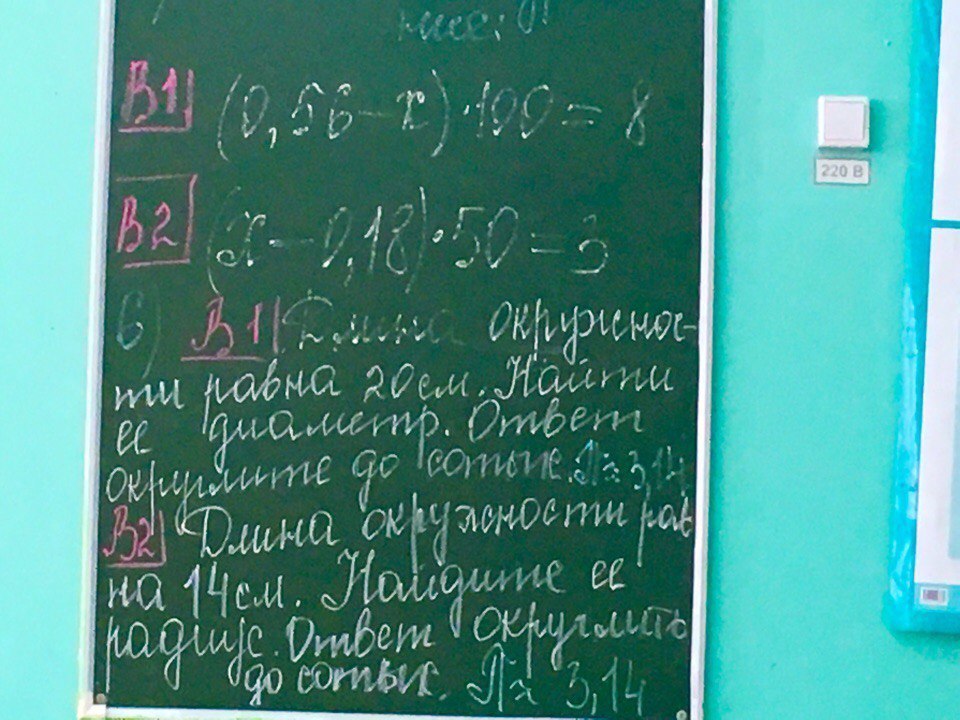 В1 (0,56 - x) · 100 = 8
В2 (x - 0,18) · 50 = 3
6) В1 Длина окружнос-
ти равна 20 см. Найти
ее диаметр. Ответ
округлите до сотых. π ≈ 3,14
В2 Длина окружности рав
на 14 см. Найдите ее
радиус. Ответ округлить
до сотых. π ≈ 3,14
220 В